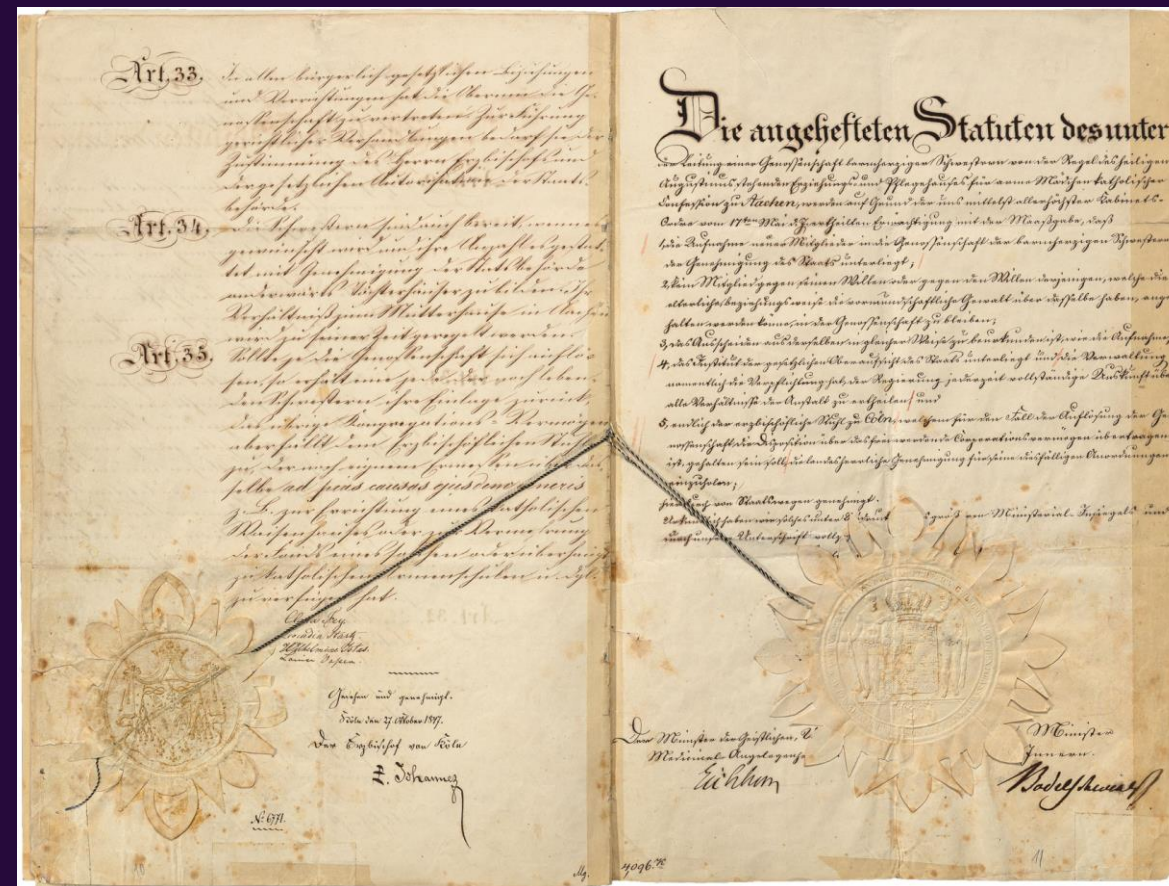 Art. 33.
In allen bürgerlich gesetzlichen Beziehungen
und Verrichtungen hat die Oberinn die Ge-
nossenschaft zu vertreten. Zur Führung
gerichtlicher Verhandlungen bedarf sie der
Zustimmung des Herrn Erzbischofs und
der gesetzlichen Autorisation der Staats-
behörde.
Art. 34.
Die Schwestern sind auch bereit, wenn es
gewünscht wird und ihre Anzahl es gestat-
tet mit Genehmigung der Staatsbehörde
anderwärts Töchterhäuser zu bilden. Ihr
Verhältniß zum Mutterhause in Aachen
wird zu seiner Zeit geregelt werden.
Art. 35.
Sollte je die Genossenschaft sich auflö-
sen, so erhält eine jede der noch leben-
den Schwestern ihre Einlage zurück.
Das übrige Kongregations-Vermögen
aber fällt dem Erzbischöflichen Stuhle
zu, der nach eignem Ermessen über das-
selbe ad pias causas ejusdem generis
z. B. zur Errichtung eines katholischen
Waisenhauses oder zur Vermehrung
der Fonds eines solchen oder überhaupt
zu katholischen Armenschulen u. dgl.
zu verfügen hat.
Clara Fey
Leocadia Startz
Wilhelmine Istas
Louise Vossen
Gesehen und genehmigt.
Köln den 27. Oktober 1847.
Der Erzbischof von Köln
+ Johannes
Die angehefteten Statuten des unter
der Leitung einer Genossenschaft barmherziger Schwestern von der Regel des heiligen
Augustinus stehenden Erziehungs- und Pflegehauses für arme Mädchen katholischer
Confession zu Aachen, werden auf Grund der uns mittelst allerhöchster Kabinets-
Ordre vom 17ten Mai d. J. ertheilten Ermächtigung mit der Maaßgabe, daß
1, die Aufnahme neuer Mitglieder in die Genossenschaft der barmherzigen Schwestern
der Genehmigung des Staats unterliegt;
2, kein Mitglied gegen seinen Willen oder gegen den Willen derjenigen, welche die
elterliche beziehungsweise die vormundschaftliche Gewalt über dasselbe haben, ange
halten werden könne, in der Genossenschaft zu bleiben;
3, das Ausscheiden aus derselben in gleicher Weise zu beurkunden ist, wie die Aufnahme;
4, das Institut der gesetzlichen Oberaufsicht des Staats unterliegt und die Verwaltung
namentlich die Verpflichtung hat, der Regierung jederzeit vollständige Auskunft über
alle Verhältnisse der Anstalt zu ertheilen, und
5, endlich der erzbischöfliche Stuhl zu Cöln, welchem für den Fall der Auflösung der Ge
nossenschaft die Disposition über das frei werdende Corporationsvermögen übertragen
ist, gehalten sein soll, die landesherrliche Genehmigung für seine desfälligen Anordnungen
einzuholen;
hierdurch von Staatswegen genehmigt.
Urkundlich haben wir solches unter Ministerial-Insiegels und
durch unsere Unterschrift vollz
Der Minister der Geistlichen,
Medicinal Angelegenhe
Eichhorn
Minister
Innern.
Bodelschwingh
4096.
10
11